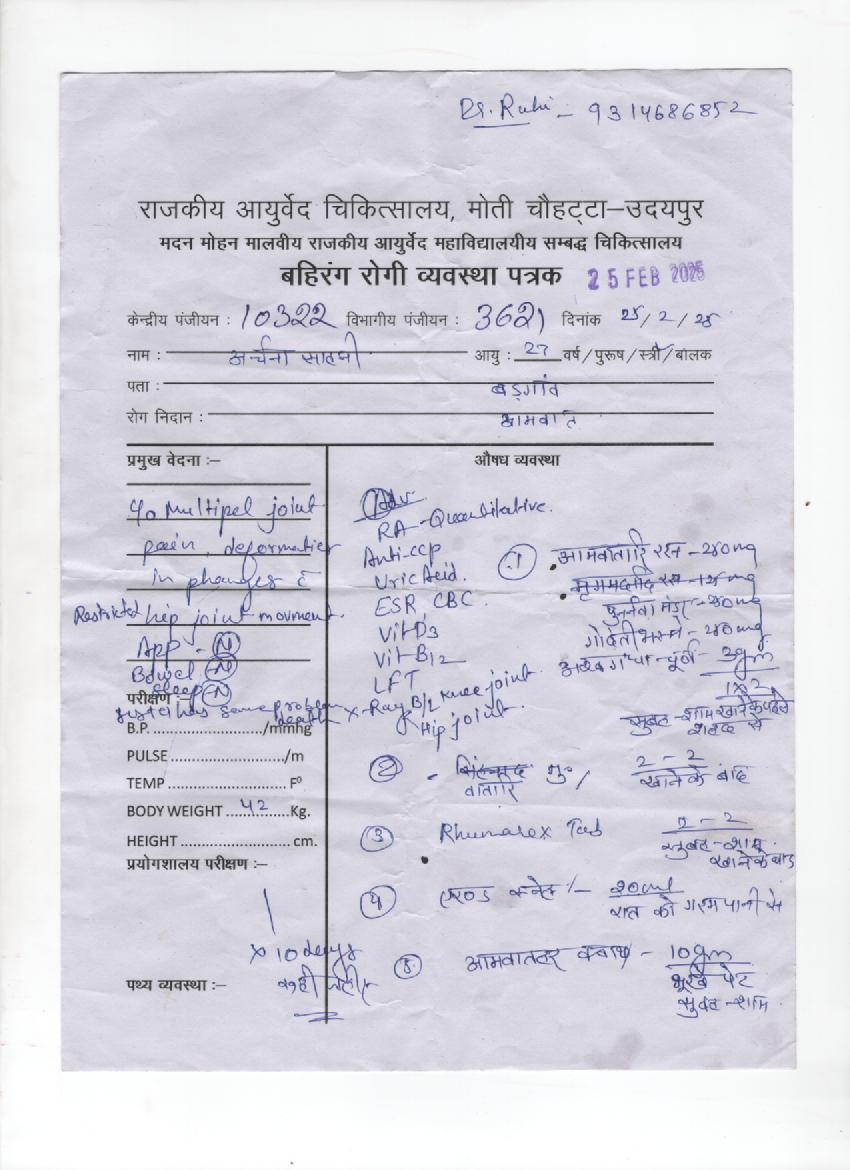 Dr. Ruhi - 9314686852
राजकीय आयुर्वेद चिकित्सालय, मोती चौहट्टा–उदयपुर
मदन मोहन मालवीय राजकीय आयुर्वेद महाविद्यालयीय सम्बद्ध चिकित्सालय
बहिरंग रोगी व्यवस्था पत्रक 25 FEB 2025
केन्द्रीय पंजीयन : 10322 विभागीय पंजीयन : 3621 दिनांक 25/2/25
नाम : अर्चना आयु : 27 वर्ष/पुरूष/स्त्री/बालक
पता : बड़गांव
रोग निदान : आमवात
प्रमुख वेदना :–
c/o Multipel joint
pain, deformaties
in phanges c̄
Restricted hip joint movment.
App - N
Bowel N
Sleep N
परीक्षण :–
sister has same problem
death
B.P. ........................../mmhg
PULSE ........................../m
TEMP .......................... F⁰
BODY WEIGHT 42 Kg.
HEIGHT .......................... cm.
प्रयोगशालय परीक्षण :–
x 10 days
पथ्य व्यवस्था :–
औषध व्यवस्था
Inv
RA - Quantitative.
Anti-ccp
Uric Acid.
ESR CBC
Vit-D3
Vit-B12
LFT
X-Ray B/L Knee joint
Hip joint.
1 आमवातारि रस - 250mg
पुर्ननवा मंडूर - 250mg
गोदंती भस्म - 250mg
अश्वगंधा - चूर्ण - 3gm
1x2
सुबह - शाम खाने के पहले
शहद से
2 वातारि गु/ 2 - 2
खाने के बाद
3 Rhumarex Tab 2 - 2
सुबह - शाम
खाने के बाद
4 एरण्ड स्नेह /- 20ml
रात को गरम पानी से
5 आमवातहर क्वाथ - 10gm
भूखे पेट
सुबह - शाम